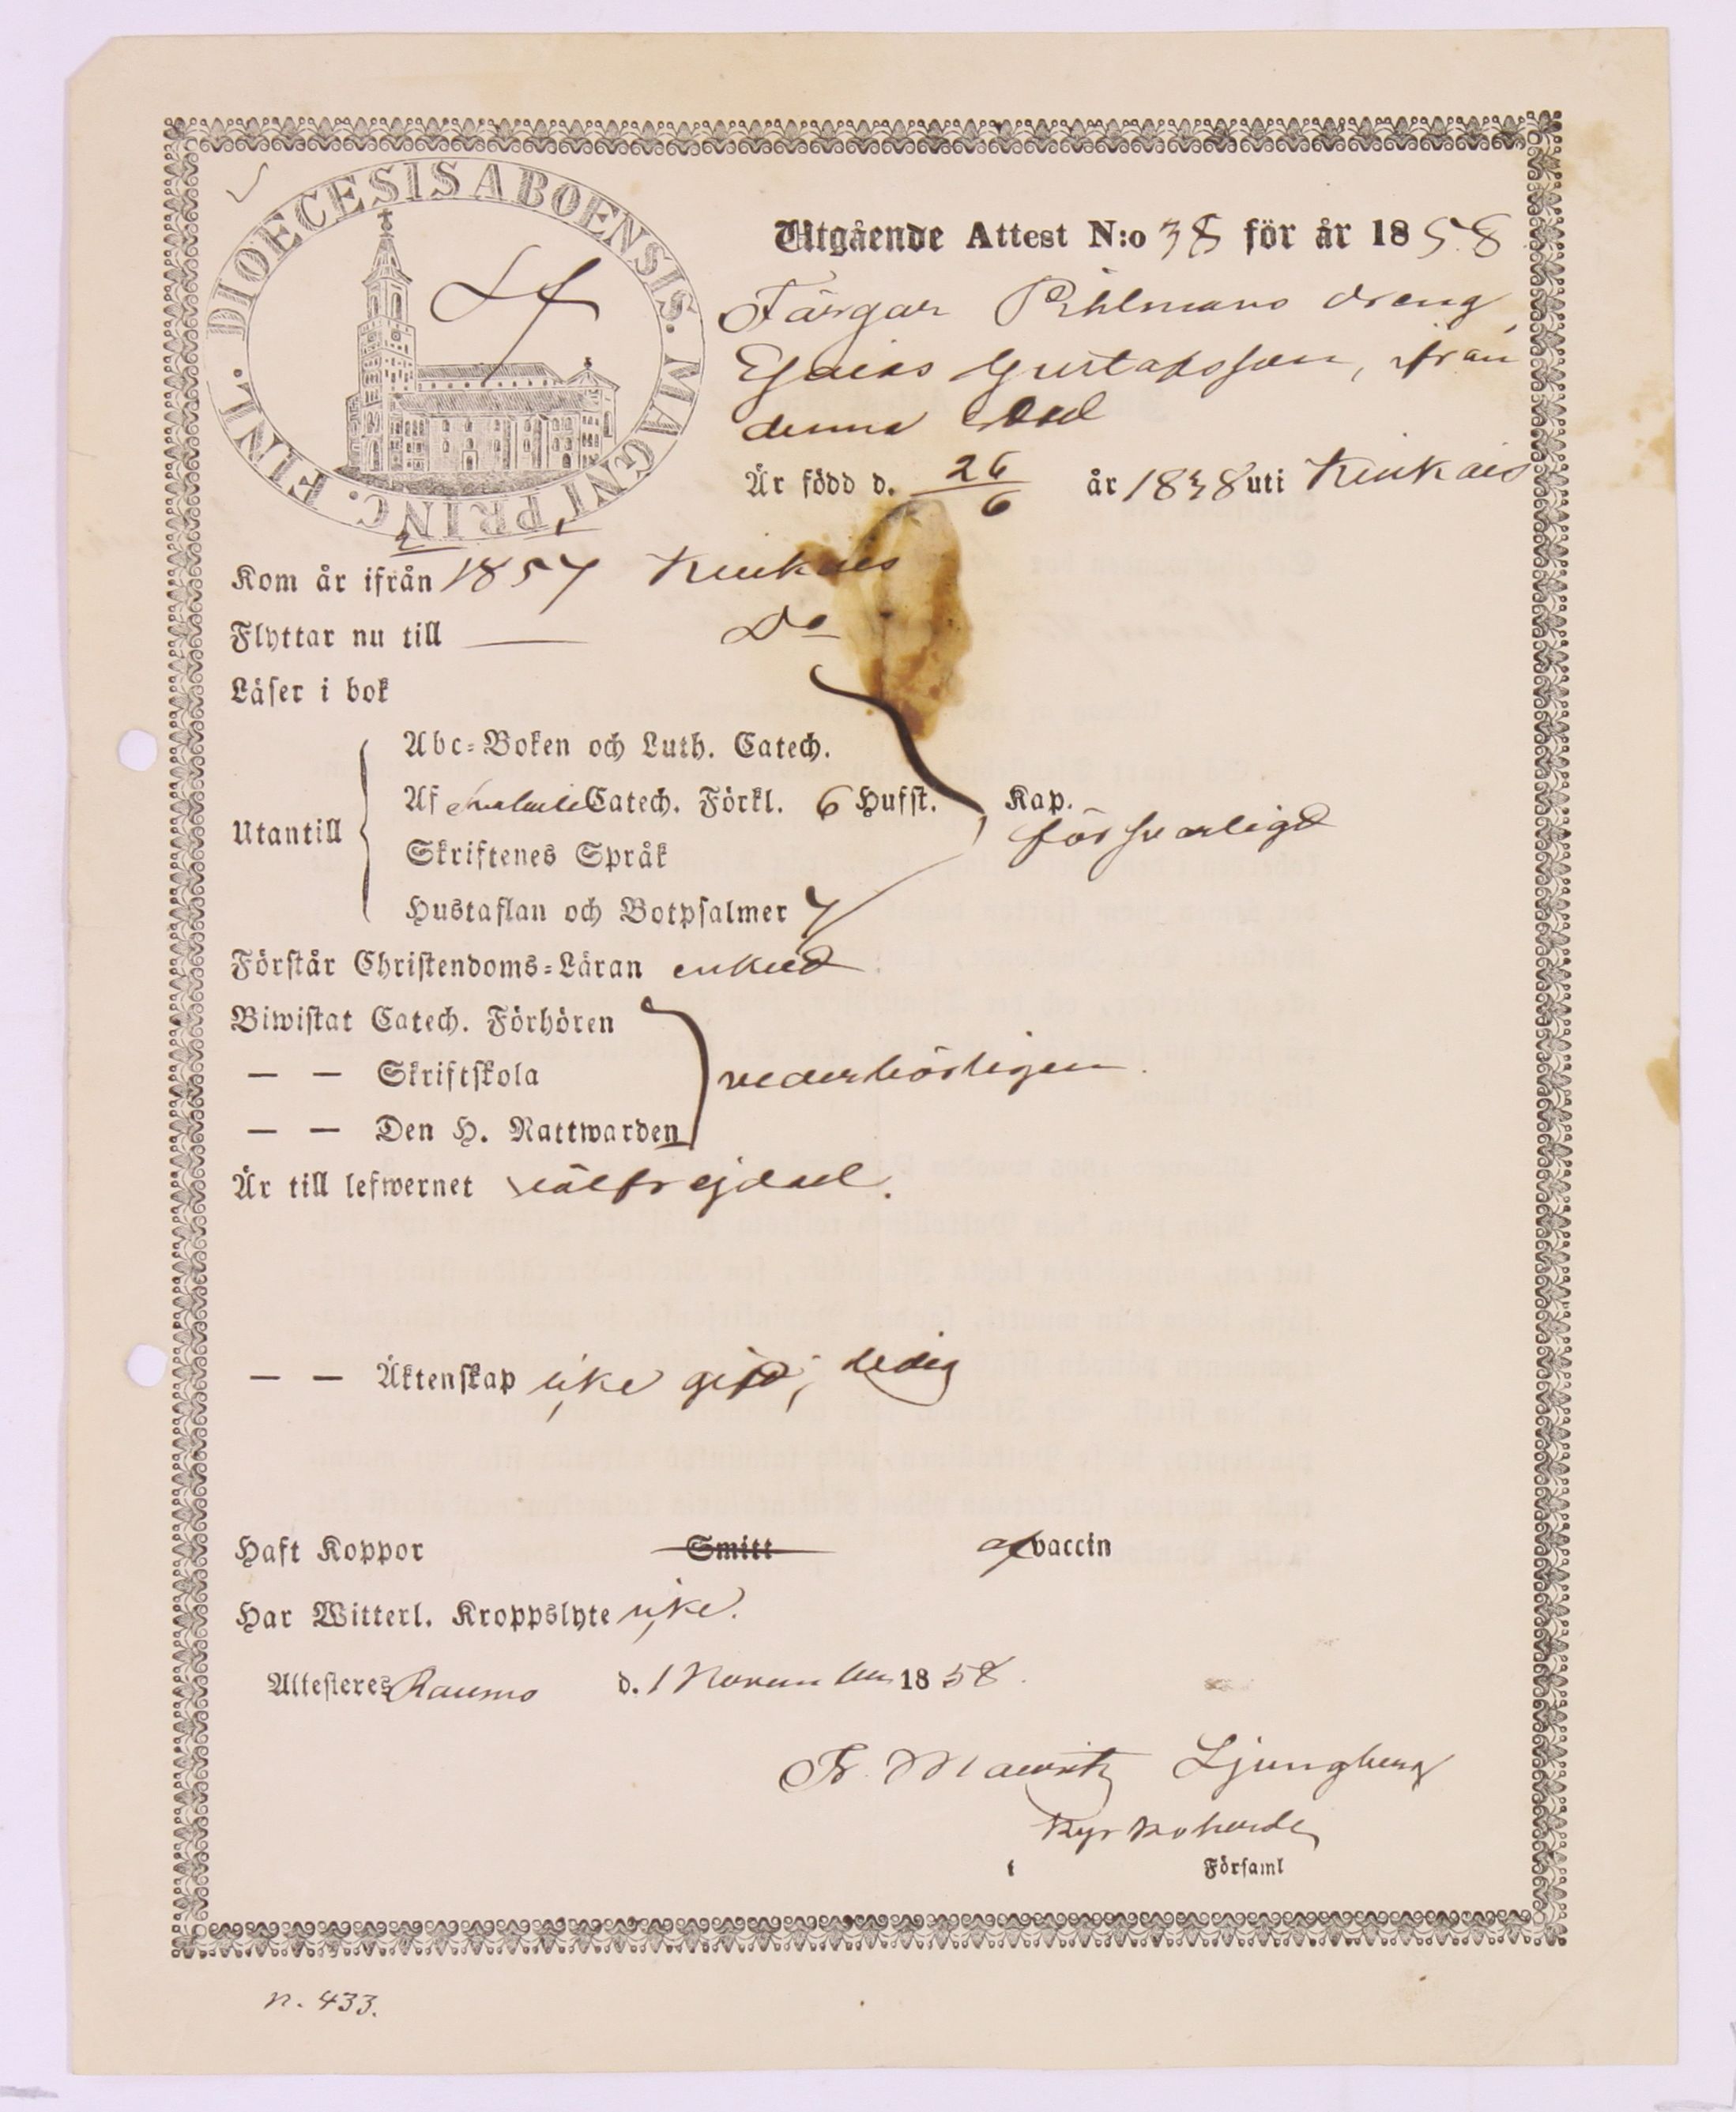 DIOECESIS ABOENSIS. MAGNI PRINC. FINL.
Utgående Attest N:o 38 för år 1858
Färgar Pihlmans dreng
Esaias Gustafsson, från
denna Stad
Är född d. 26/6 år 1838 uti Kiukais
Kom år ifrån 1857 Kiukais
Flyttar nu till — Do
Läser i bok
Abc-Boken och Luth. Catech.
Af Catech. Förkl. 6 Hufst. Kap.
försvarligt
Utantill
Skriftenes Språk
Hustaflan och Botpsalmer 7
Förstår Christendoms-Läran enkelt
Biwistat Catech. Förhören
— — Skriftskola vederbörligen.
— — Den H. Nattwarden
Är till lefwernet välfrejdad.
— — Äktenskap icke gift, ledig
Haft Koppor Smitt af vaccin
Har Witterl. Kroppslyte icke.
Attesteres Raumo d. 1 November 1858.
Fr. Mauritz Ljungberg
Kyrkoherde
i Församl
n. 433.